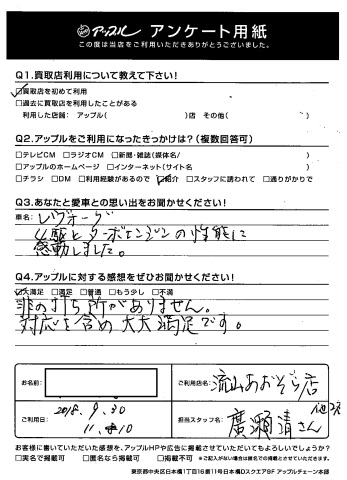 アップル アンケート用紙
この度は当店をご利用いただきありがとうございました。
Q1.買取店利用について教えて下さい!
□買取店を初めて利用
□過去に買取店を利用したことがある
利用した店舗: アップル( )店 その他( )
Q2.アップルをご利用になったきっかけは?(複数回答可)
□テレビCM □ラジオCM □新聞・雑誌(媒体名/ )
□アップルのホームページ □インターネット(サイト名 )
□チラシ □DM □利用経験があるので □紹介 □スタッフに誘われて □通りがかりで
Q3.あなたと愛車との思い出をお聞かせください!
車名: レヴォーグ
四駆とターボエンジンの性能に
感動しました。
Q4.アップルに対する感想をぜひお聞かせください!
□大満足 □満足 □普通 □もう少し □不満
非の打ち所がありません。
対応を含め大大満足です。
お名前:
ご利用店名: 流山おおぞら店
ご利用日: 2018.9.30
11.10
担当スタッフ名: 廣瀬清さん
お客様に書いていただいた感想を、アップルHPや広告に掲載させていただいてもよろしいでしょうか?
□実名で掲載可 □匿名なら掲載可 □掲載不可 ※ご記入がない場合は匿名での掲載とさせていただきます。
東京都中央区日本橋1丁目16番11号日本橋Dスクエア9F アップルチェーン本部